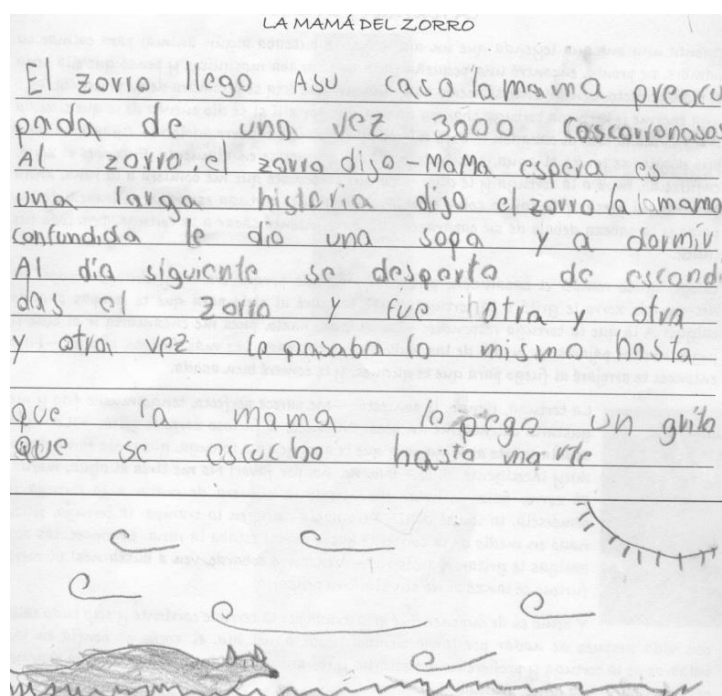 LA MAMÁ DEL ZORRO
El zorro llego Asu casa lamama preocu
pada de una vez 3000 coscorronasos
Al zorro el zorro dijo-MaMa espera es
una larga historia dijo el zorro la lamama
confundida le dio una sopa y a dormir
Al día siguiente se desperto de escondi
das el zorro fue hotra y otra
y otra vez lepasaba lo mismo hasta
que la mama le pego un grito
que se escucho hasta marte